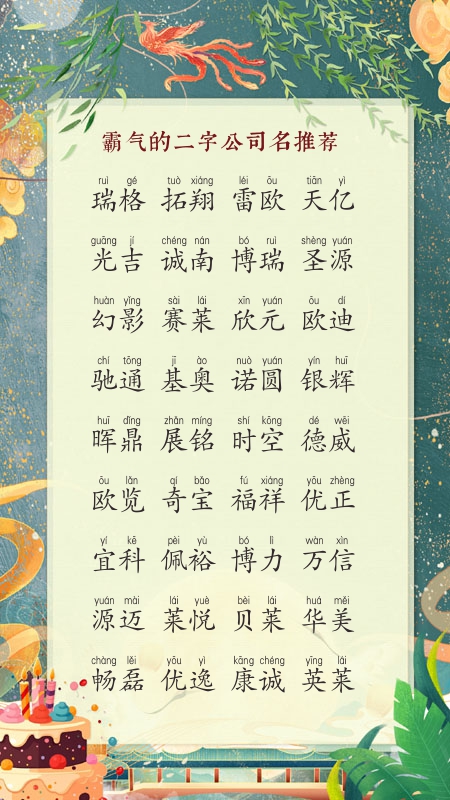 霸气的二字公司名推荐
ruì gé tuò xiáng léi ōu tiān yì
瑞格 拓翔 雷欧 天亿
guāng jí chéng nán bó ruì shèng yuán
光吉 诚南 博瑞 圣源
huàn yǐng sài lái xīn yuán ōu dí
幻影 赛莱 欣元 欧迪
chí tōng jī ào nuò yuán yín huī
驰通 基奥 诺圆 银辉
huī dǐng zhǎn míng shí kōng dé wēi
晖鼎 展铭 时空 德威
ōu lǎn qí bǎo fú xiáng yōu zhèng
欧览 奇宝 福祥 优正
yí kē pèi yù bó lì wàn xìn
宜科 佩裕 博力 万信
yuán mài lái yuè bèi lái huá měi
源迈 莱悦 贝莱 华美
chàng lěi yōu yì kāng chéng yīng lái
畅磊 优逸 康诚 英莱